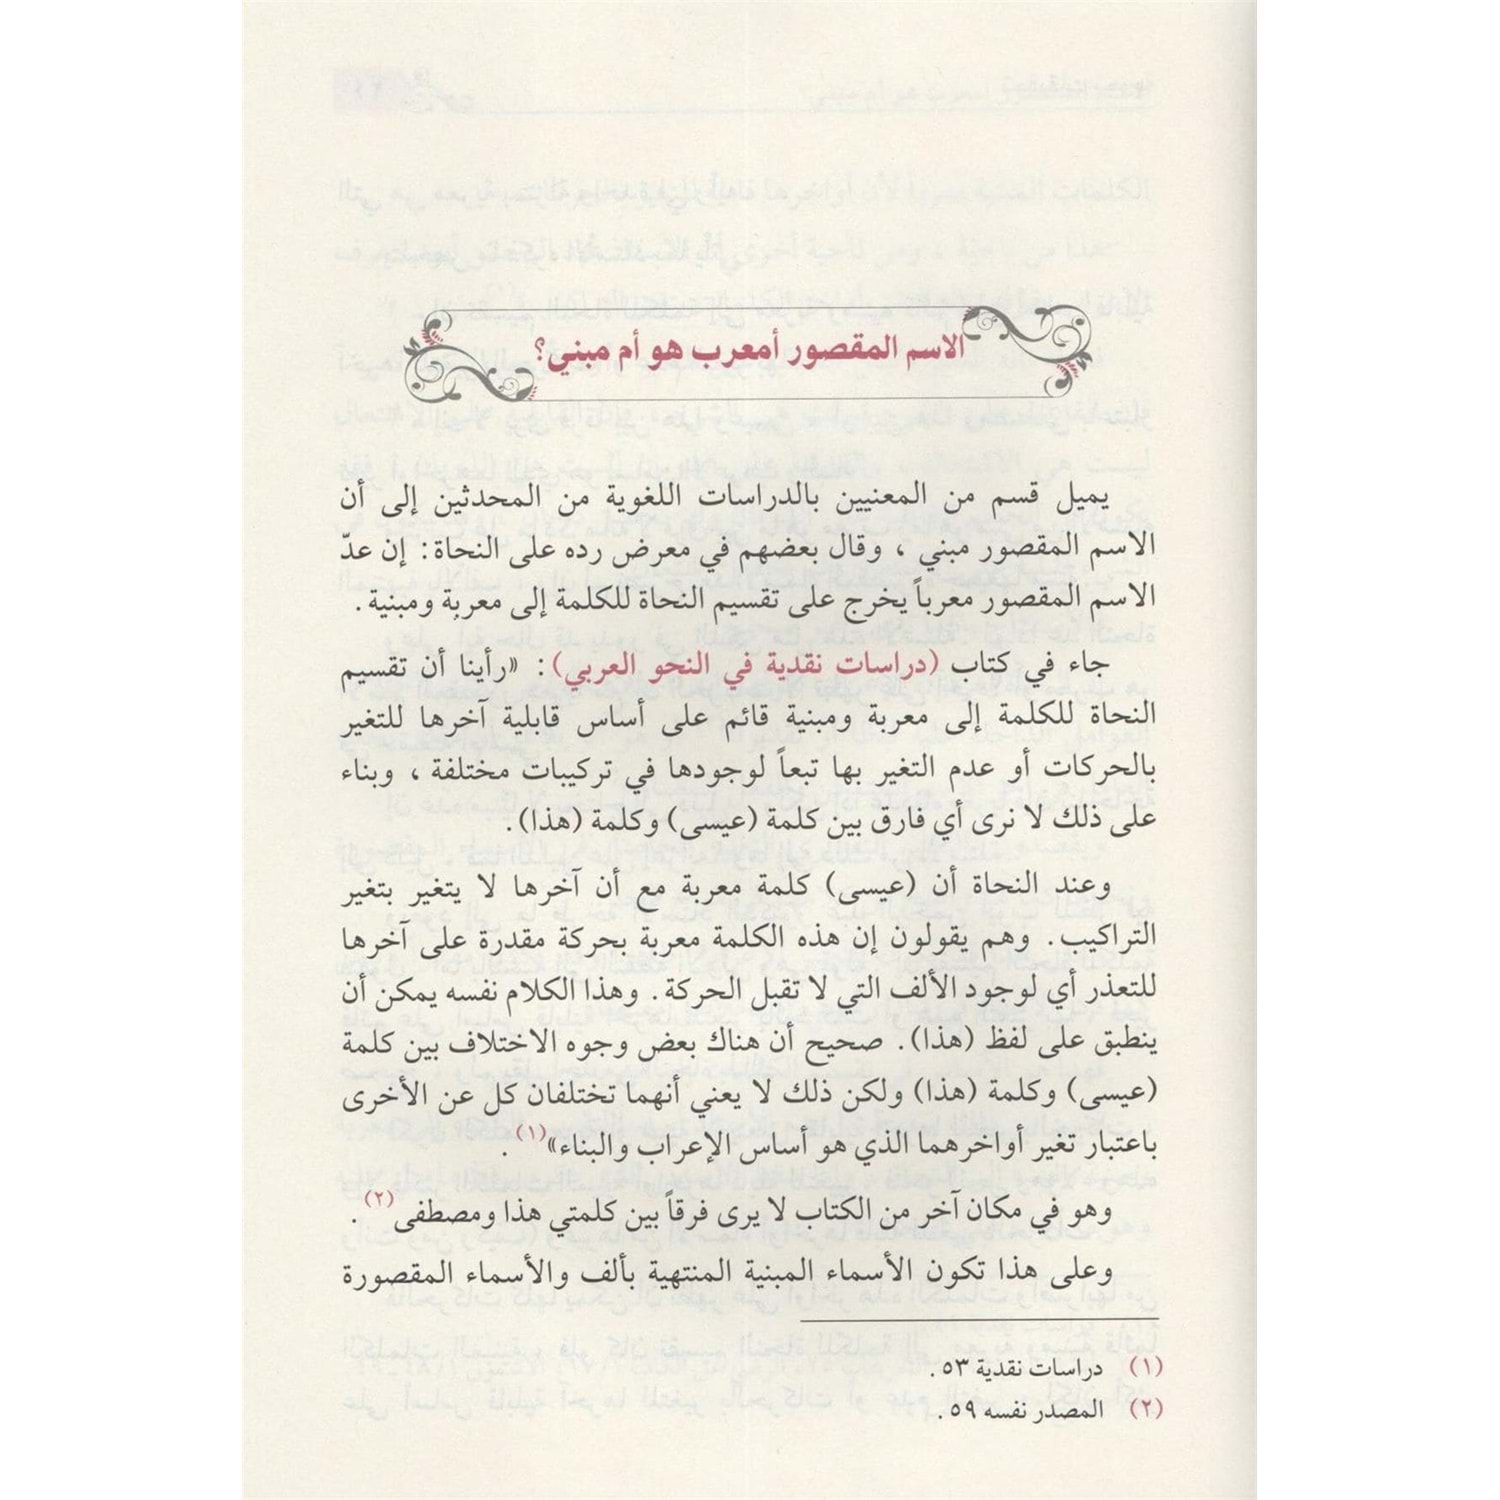 الاسم المقصور أمعرب هو أم مبني؟
يميل قسم من المعنيين بالدراسات اللغوية من المحدثين إلى أن
الاسم المقصور مبني ، وقال بعضهم في معرض رده على النحاة: إن عدّ
الاسم المقصور معرباً يخرج على تقسيم النحاة للكلمة إلى معربة ومبنية.
جاء في كتاب (دراسات نقدية في النحو العربي): «رأينا أن تقسيم
النحاة للكلمة إلى معربة ومبنية قائم على أساس قابلية آخرها للتغير
بالحركات أو عدم التغير بها تبعاً لوجودها في تركيبات مختلفة ، وبناء
على ذلك لا نرى أي فارق بين كلمة (عيسى) وكلمة (هذا).
وعند النحاة أن (عيسى) كلمة معربة مع أن آخرها لا يتغير بتغير
التراكيب. وهم يقولون إن هذه الكلمة معربة بحركة مقدرة على آخرها
للتعذر أي لوجود الألف التي لا تقبل الحركة. وهذا الكلام نفسه يمكن أن
ينطبق على لفظ (هذا). صحيح أن هناك بعض وجوه الاختلاف بين كلمة
(عيسى) وكلمة (هذا) ولكن ذلك لا يعني أنهما تختلفان كل عن الأخرى
باعتبار تغير أواخرهما الذي هو أساس الإعراب والبناء»(١).
وهو في مكان آخر من الكتاب لا يرى فرقاً بين كلمتي هذا ومصطفى(٢).
وعلى هذا تكون الأسماء المبنية المنتهية بألف والأسماء المقصورة
(١) دراسات نقدية ٥٣.
(٢) المصدر نفسه ٥٩.